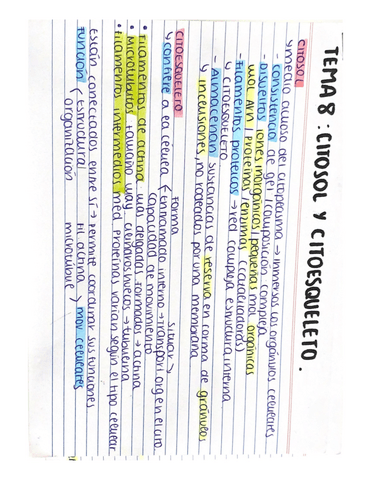 TEMA 8: CITOSOL Y CITOESQUELETO.
CITOSOL
↳ medio acuoso del citoplasma → inmersos los orgánulos celulares
- consistencia de gel / composición compleja
- Disueltos iones inorgánicos / pequeñas mol. orgánicas
mol. ARN / proteínas / enzimas (catalizadoras)
- Filamentos proteicos → red compleja estructura interna
↳ CITOESQUELETO
- Almacenan sustancias de reserva en forma de gránulos
↳ incusiones, no rodeados por una membrana
CITOESQUELETO
↳ confiere a la célula
forma
entramado interno → transport. org en el cito.
situar
capacidad de movimiento
• Filamentos de actina más delgados formados → actina
• Microtúbulos tamaño may. cilindros huecos → tubulina
• Filamentos intermedios med. Proteínas varían según el tipo celular
Están conectados entre sí → permite coordinar sus funciones
Función
Estructural
organización
Fil. actina
microtúbulo
mov. celulares